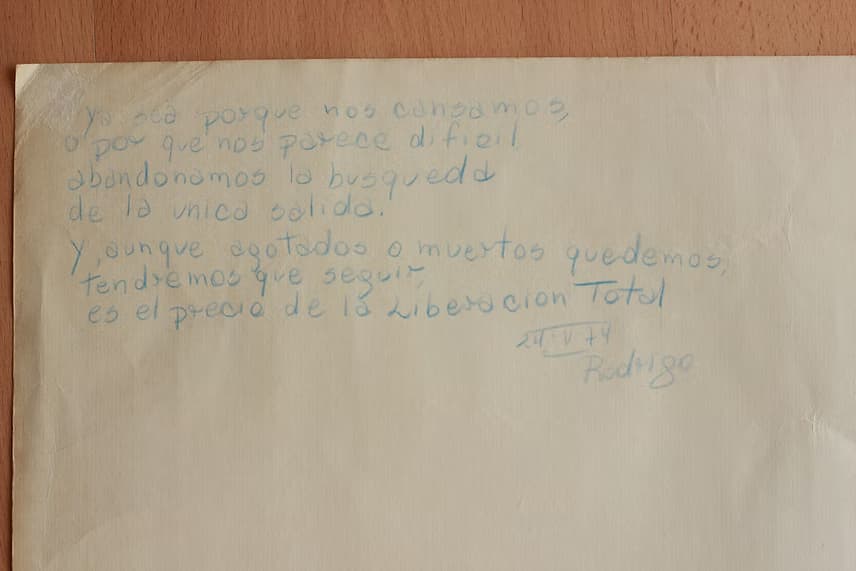 Ya sea porque nos cansamos,
o por que nos parece dificil
abandonamos la busqueda
de la unica salida.
Y, aunque agotados o muertos quedemos,
tendremos que seguir,
es el precio de la Liberacion Total
24 V 74
Rodrigo